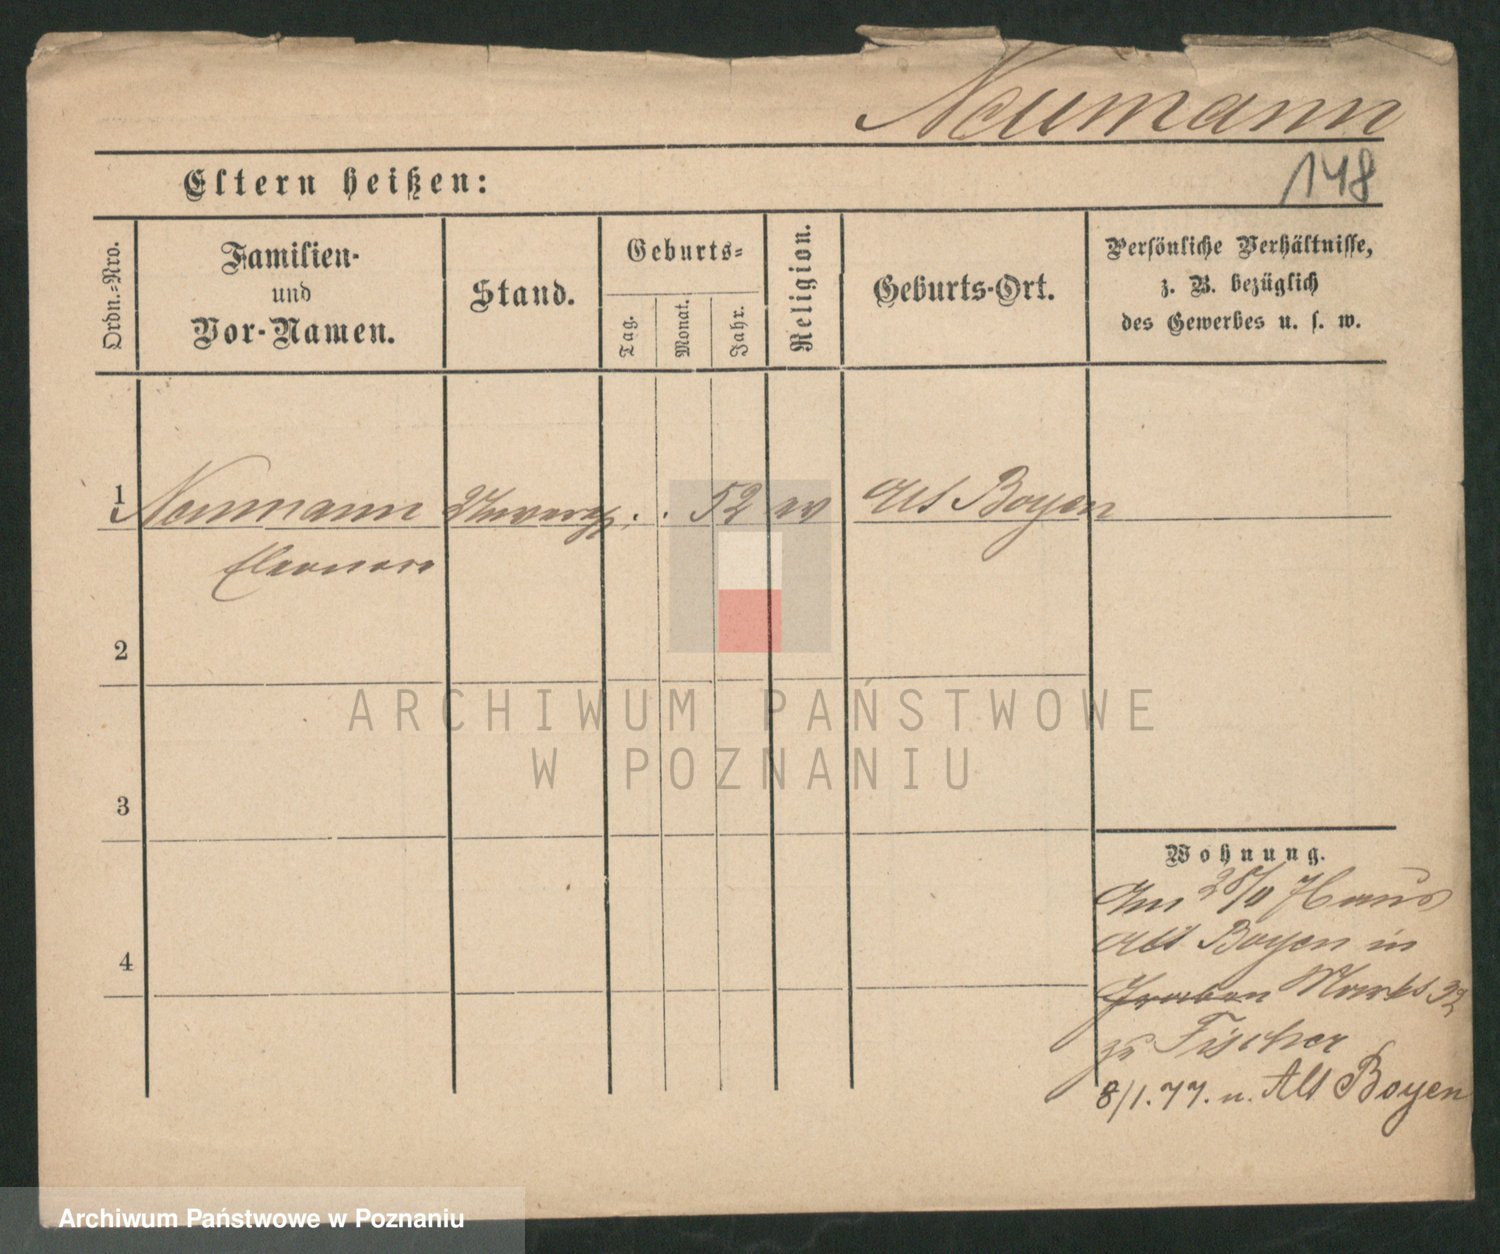 Neumann
148
Eltern heißen:
Ordn.-Nro.
Familien-
und
Vor-Namen.
Stand.
Geburts-
Tag.
Monat.
Jahr.
Religion.
Geburts-Ort.
Persönliche Verhältnisse,
z. B. bezüglich
des Gewerbes u. s. w.
1 Neumann . . 52 Alt Boyen
Eleonore
2
3
4
Wohnung.
Alt Boyen in
Graben Markt 32
zu Fischer
8/1.77. n. Alt Boyen
ARCHIWUM PAŃSTWOWE
W POZNANIU
Archiwum Państwowe w Poznaniu